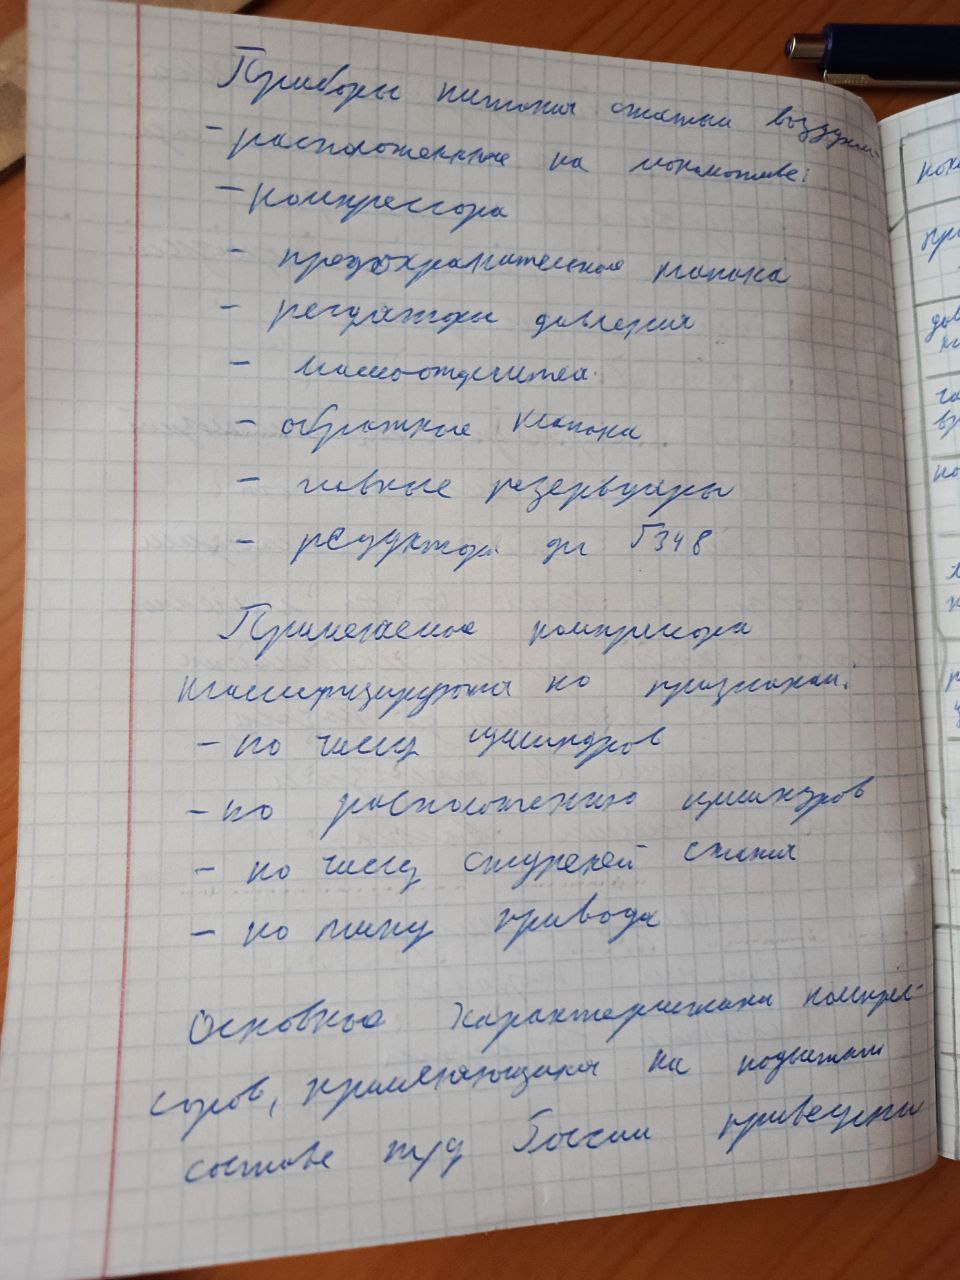 Приборы питания сжатым воздухом
- расположенные на локомотиве:
- компрессора
- предохранительные клапана
- регуляторы давления
- маслоотделители
- обратные клапана
- главные резервуары
- редуктора для 348
Применяемые компрессора
классифицируются по признакам:
- по числу цилиндров
- по расположению цилиндров
- по числу ступеней сжатия
- по типу привода
Основные характеристики компрес-
соров, применяющихся на подвижном
составе ж/д России приведены